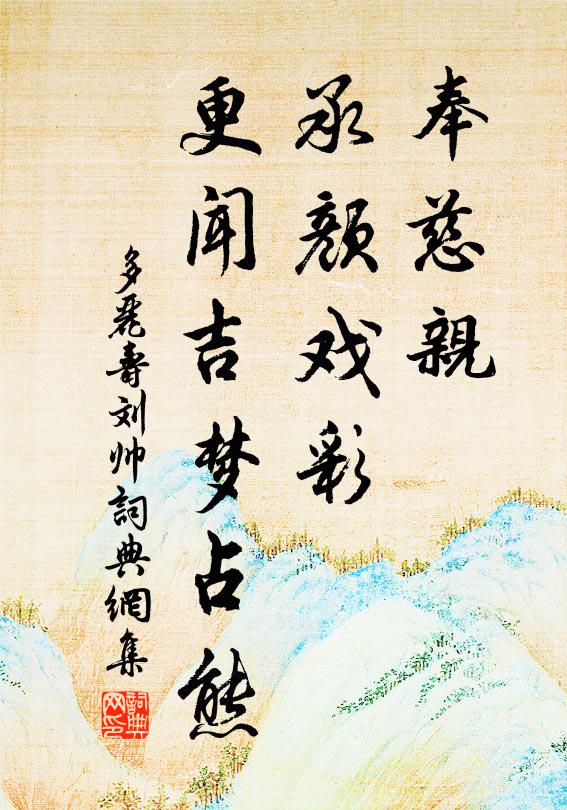 奉慈親
承顔戏彩
更闻吉梦占熊
多麗壽刘帅詞典網集
詞典网印